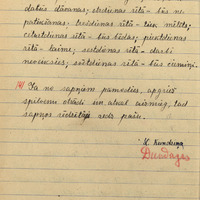 dabūs dāvanas; otrdienas rītā - būs ne-
patikšanas; trešdienas rītā - tiek mīlēts;
ceturtdienas rītā - būs bēdas; piektdienas
rītā - laime; sestdienas rītā - darbi
neveiksies; svētdienas rītā - būs ciemiņi.
14) Ja no sapņiem pamodies, apgriež
spilvenu otrādi un atkal iemieg, tad
sapņos redzētājs redz pašu.
K. Kundziņa
Dundagas